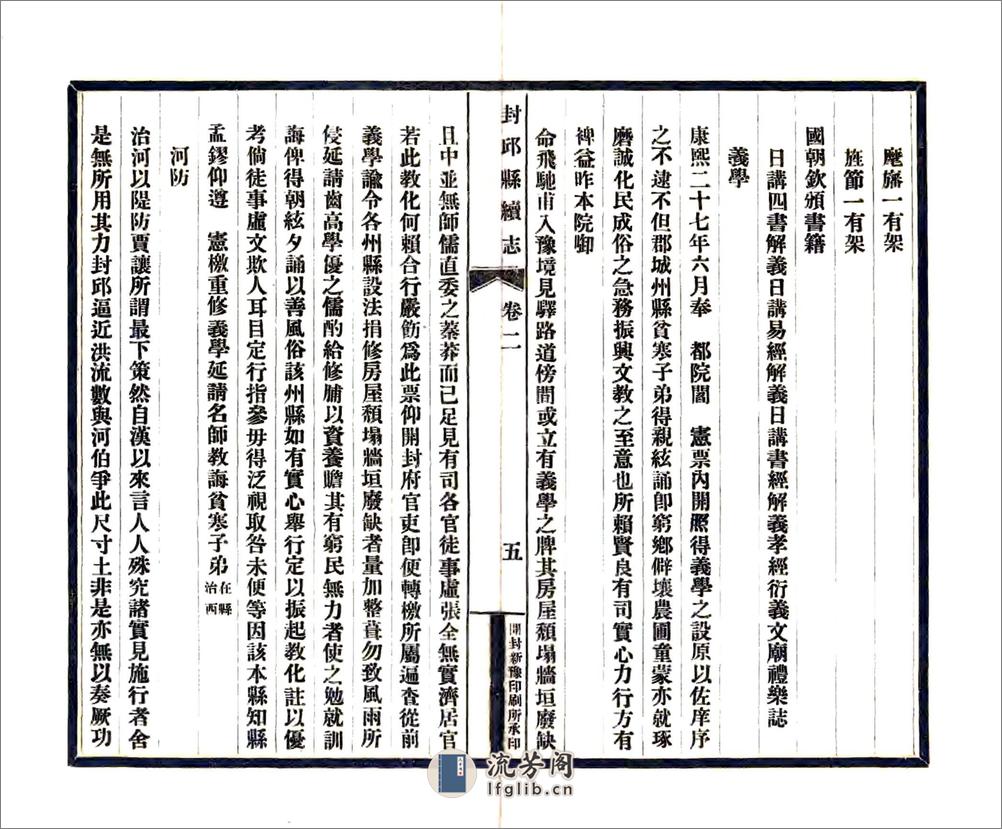 麾旛一有架
旌節一有架
國朝欽頒書籍
日講四書解義日講易經解義日講書經解義孝經衍義文廟禮樂誌
義學
康熙二十七年六月奉 都院閻 憲票內開照得義學之設原以佐庠序
之不逮不但郡城州縣貧寒子弟得親絃誦卽窮鄉僻壤農圃童蒙亦就琢
磨誠化民成俗之急務振興文教之至意也所賴賢良有司實心力行方有
裨益昨本院啣
命飛馳甫入豫境見驛路道傍間或立有義學之牌其房屋頹塌牆垣廢缺
封邱縣續志 卷二 五 開封新豫印刷所承印
且中並無師儒直委之蓁莽而已足見有司各官徒事虛張全無實濟居官
若此教化何賴合行嚴飭爲此票仰開封府官吏卽便轉檄所屬逼查從前
義學諭令各州縣設法捐修房屋頹塌牆垣廢缺者量加整葺勿致風雨所
侵延請齒高學優之儒酌給修脯以資養贍其有窮民無力者使之勉就訓
誨俾得朝絃夕誦以善風俗該州縣如有實心舉行定以振起教化註以優
考倘徒事虛文欺人耳目定行指參毋得泛視取咎未便等因該本縣知縣
孟鏐仰遵 憲檄重修義學延請名師教誨貧寒子弟在縣治西
河防
治河以隄防賈讓所謂最下策然自漢以來言人人殊究諸實見施行者舍
是無所用其力封邱逼近洪流數與河伯爭此尺寸土非是亦無以奏厥功
流芳阁
lfglib.cn